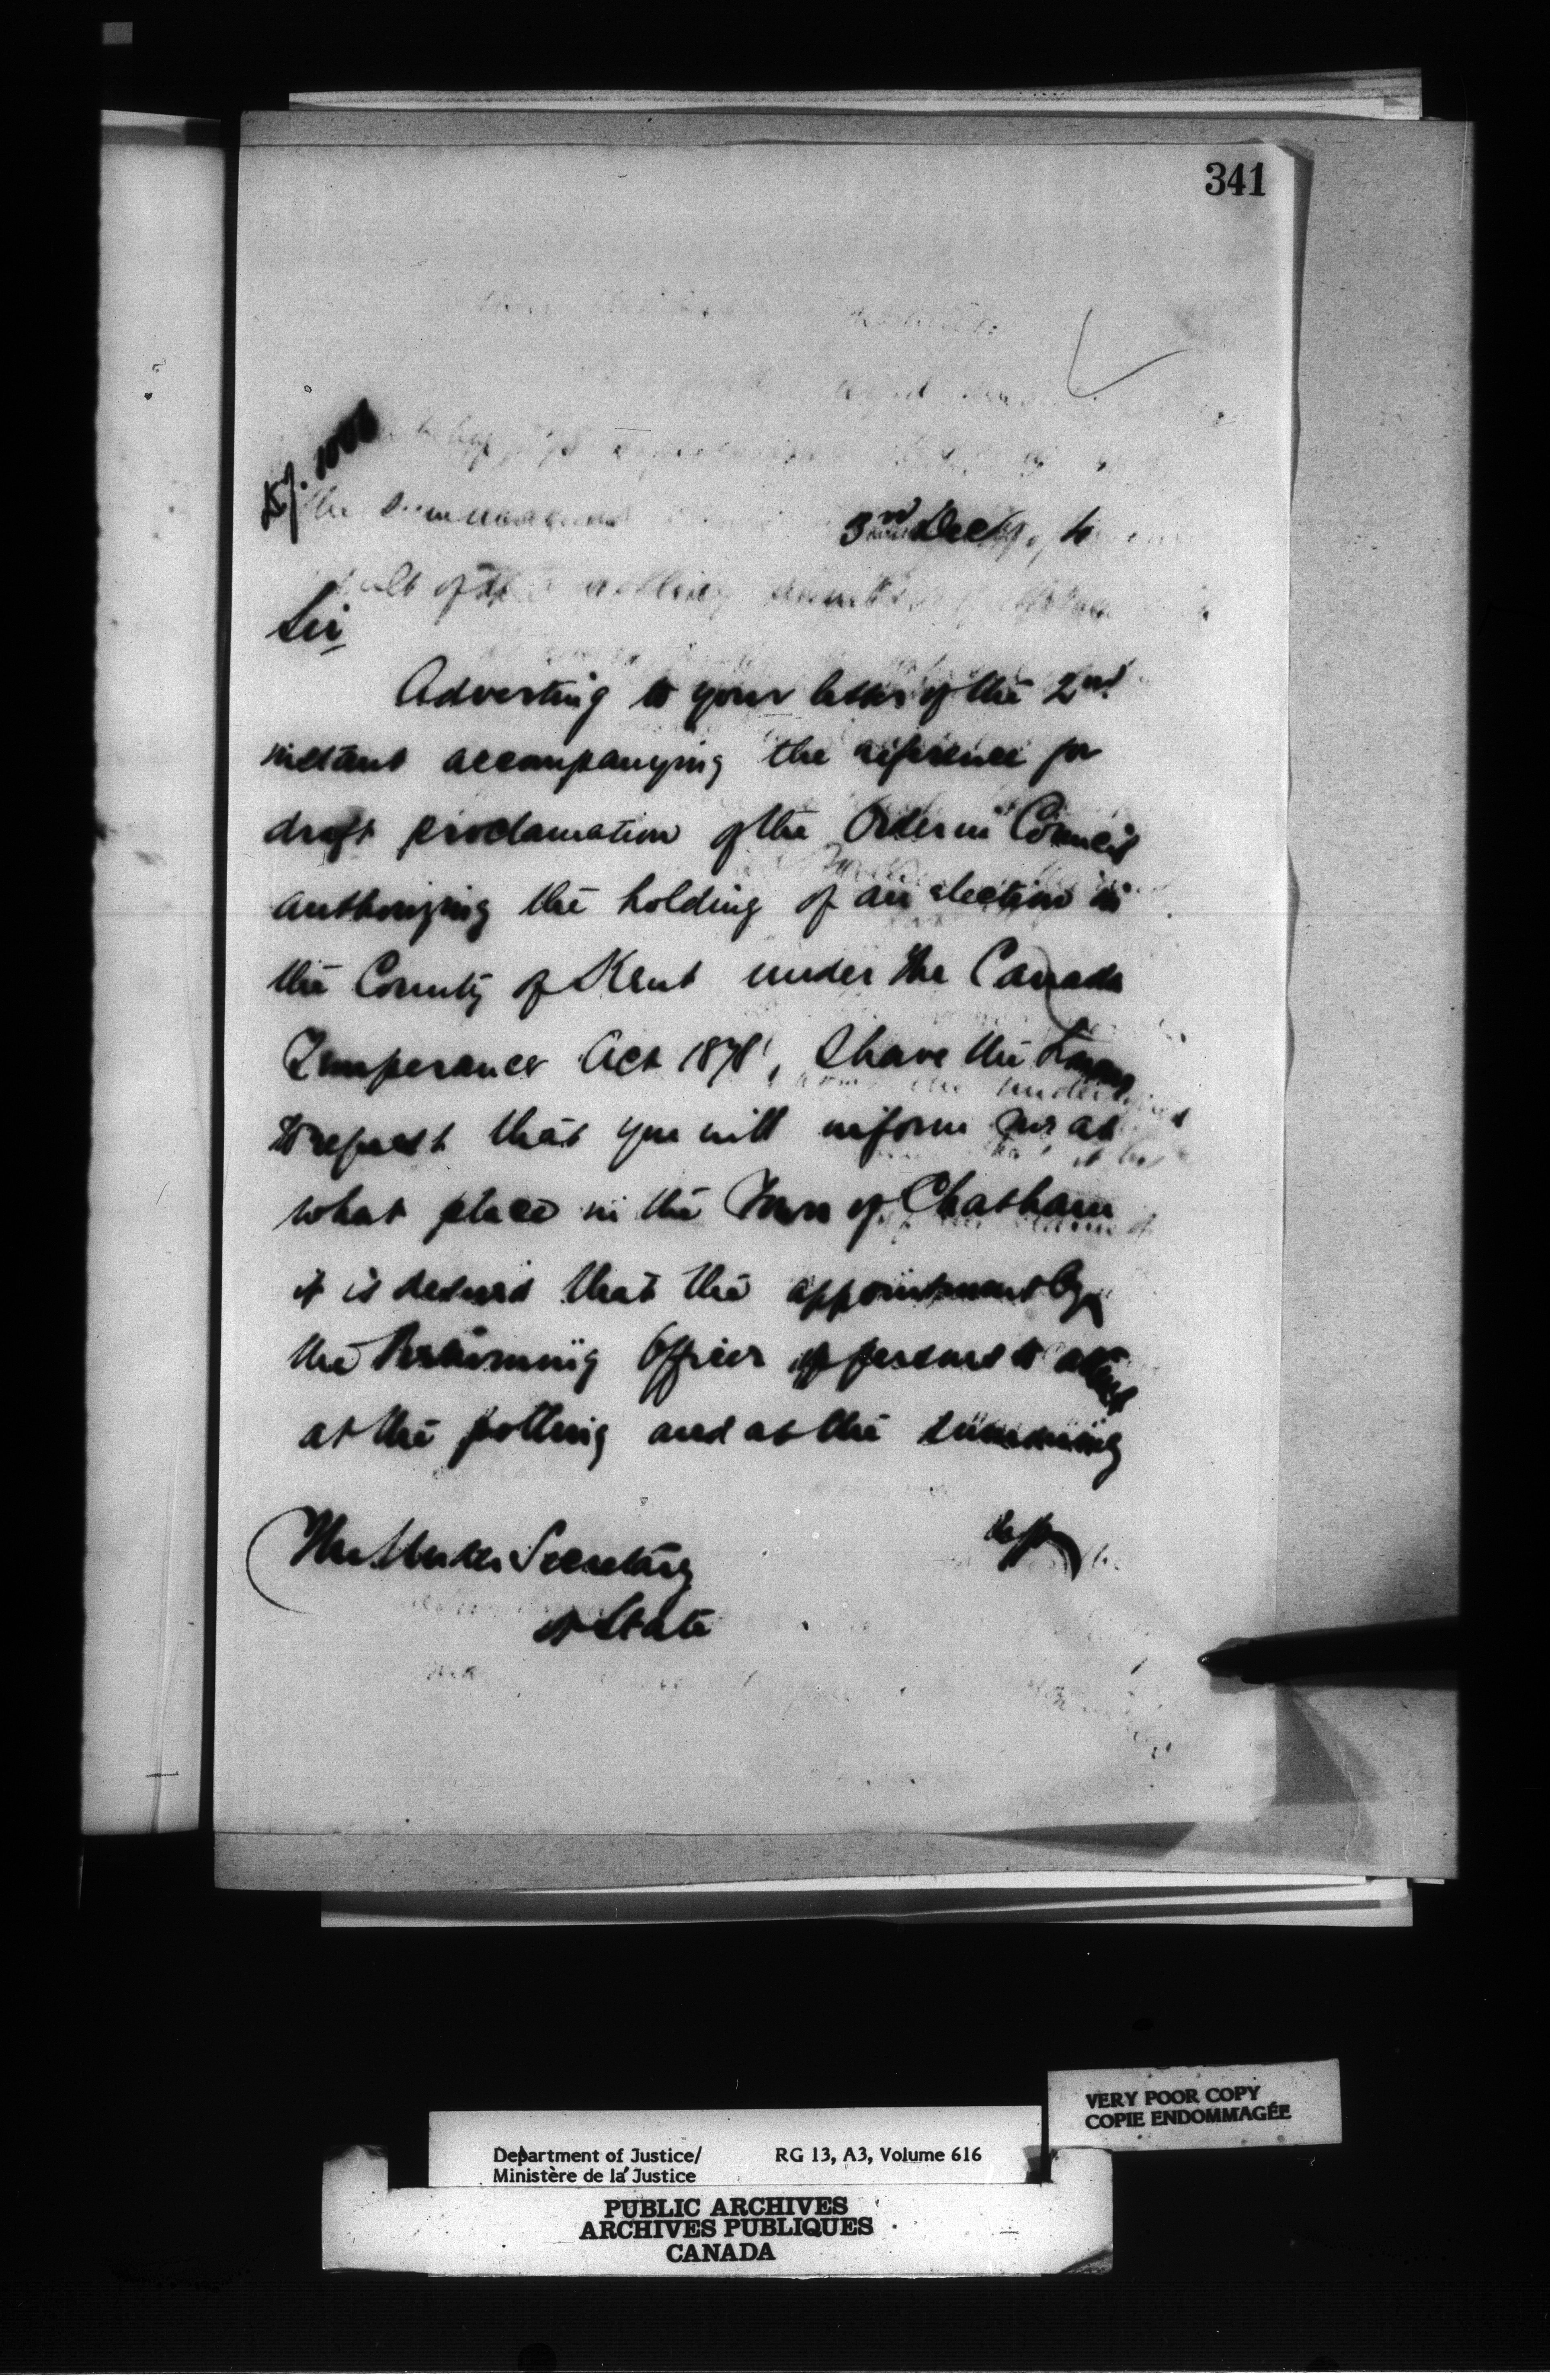 341
3rd Dec
Sir
Adverting to your letter of the 2nd
instant accompanying the reference for
draft proclamation of the Order in Council
authorizing the holding of an election in
the County of Kent under the Canada
Temperance Act 1878, I have the honor
to request that you will inform me at
what place in the Town of Chatham
it is desired that the appointment by
the Returning Officer of persons to attend
at the polling and at the summing
The Under Secretary
of State
VERY POOR COPY
COPIE ENDOMMAGÉE
Department of Justice/ RG 13, A3, Volume 616
Ministère de la Justice
PUBLIC ARCHIVES
ARCHIVES PUBLIQUES
CANADA